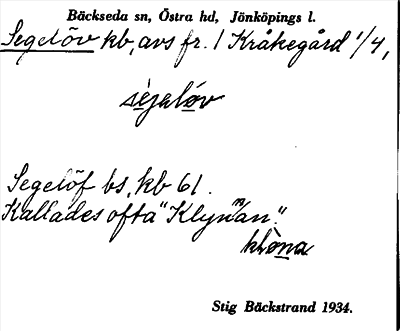 Bäckseda sn, Östra hd, Jönköpings l.
Segelöv kb, avs fr. 1 Kråkegård 1/4,
sejalöv
Segelöf bs, kb 61.
Kallades ofta "Klynnan".
Stig Bäckstrand 1934.